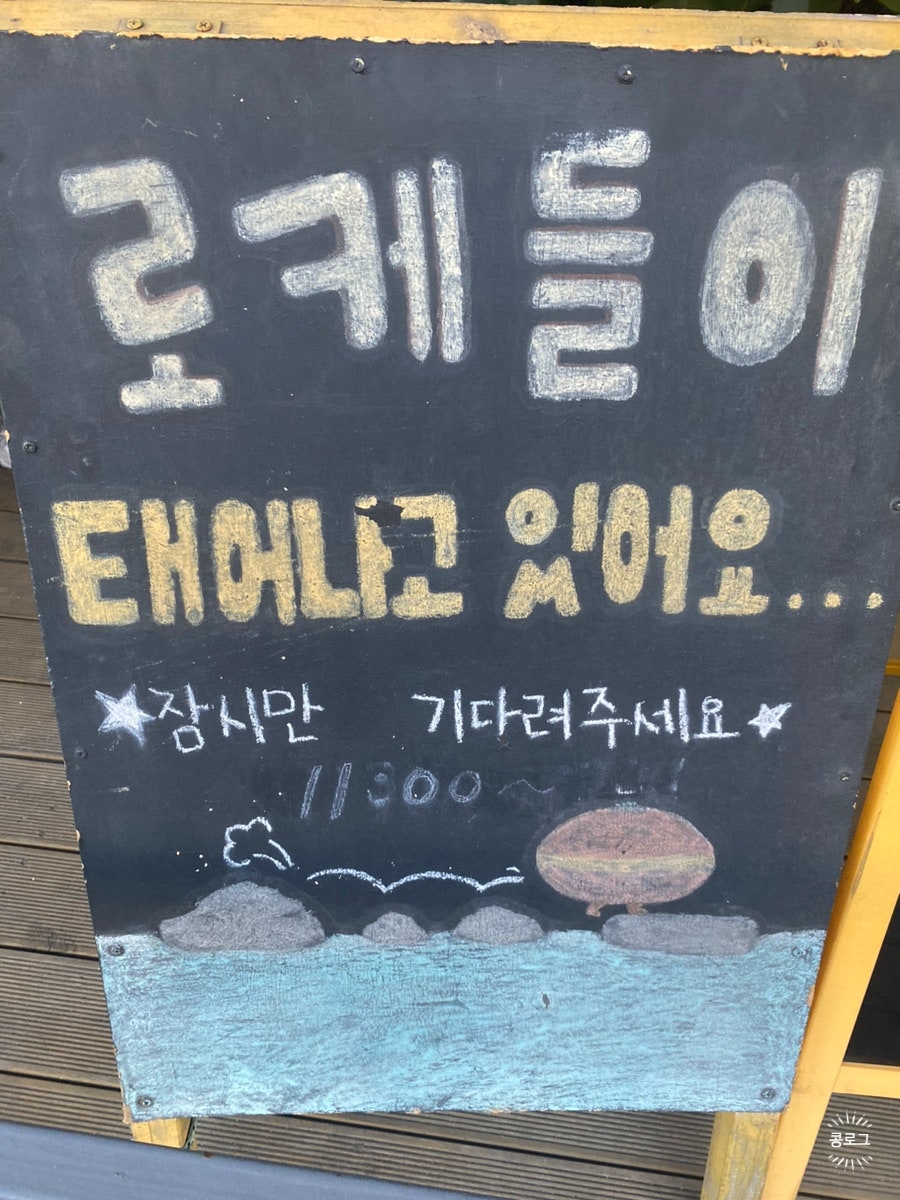 로케들이
태어나고 있어요...
★잠시만 기다려주세요★
11:00~
콩로그